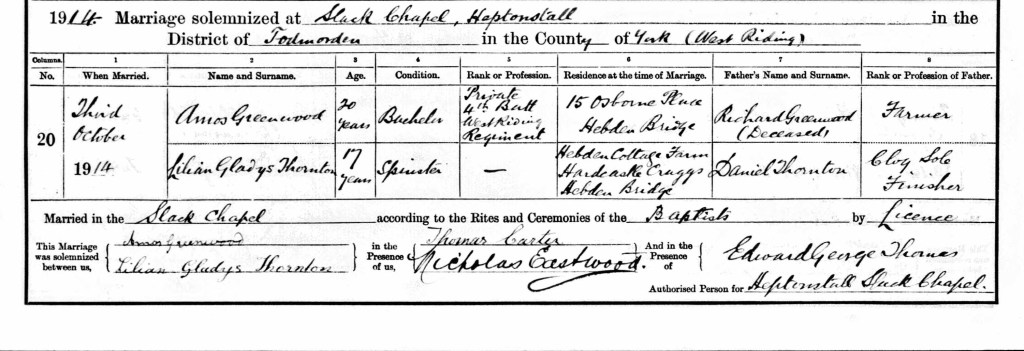 1914. Marriage solemnized at Slack Chapel, Heptonstall in the
District of Todmorden in the County of York (West Riding)
Columns. 1 2 3 4 5 6 7 8
No. When Married. Name and Surname. Age. Condition. Rank or Profession. Residence at the time of Marriage. Father's Name and Surname. Rank or Profession of Father.
20
Third
October
1914
Amos Greenwood
20
years
Bachelor
Private
4th Batt
West Riding
Regiment
15 Osborne Place
Hebden Bridge
Richard Greenwood
(Deceased)
Farmer
Lilian Gladys Thornton
17
years
Spinster
—
Hebden Cottage Farm
Hardcastle Craggs
Hebden Bridge
Daniel Thornton
Clog Sole
Finisher
Married in the Slack Chapel according to the Rites and Ceremonies of the Baptists by Licence
This Marriage
was solemnized
between us,
Amos Greenwood
Lilian Gladys Thornton
in the
Presence
of us,
Thomas Carter
Nicholas Eastwood.
And in the
Presence
of
Edward George Thomas
Authorised Person for Heptonstall Slack Chapel.